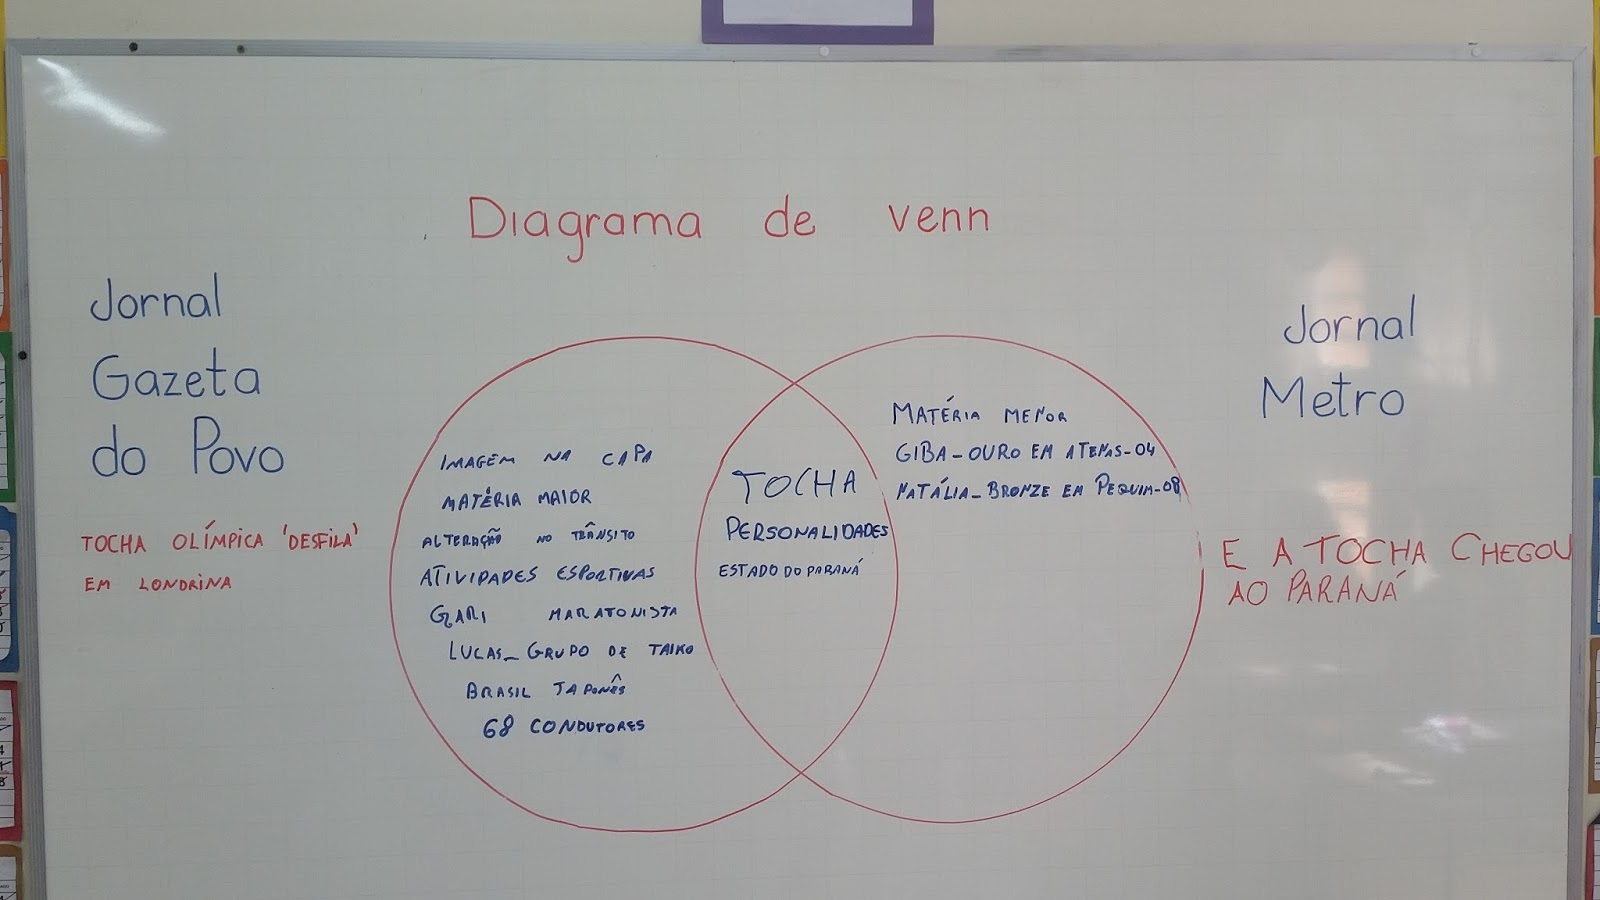 Diagrama de venn
Jornal
Gazeta
do Povo
TOCHA OLÍMPICA 'DESFILA'
EM LONDRINA
IMAGEM NA CAPA
MATÉRIA MAIOR
ALTERAÇÃO NO TRÂNSITO
ATIVIDADES ESPORTIVAS
GARI MARATONISTA
LUCAS_ GRUPO DE TAIKO
BRASIL JAPONÊS
68 CONDUTORES
TOCHA
PERSONALIDADES
ESTADO DO PARANÁ
MATÉRIA MENOR
GIBA-OURO EM ATENAS-04
NATÁLIA_BRONZE EM PEQUIM-08
Jornal
Metro
E A TOCHA CHEGOU
AO PARANÁ